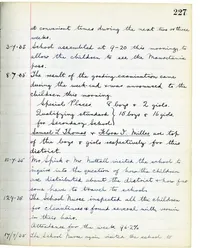 227
at convenient times during the next two or three
weeks.
School assembled at 9-20 this morning to
allow the children to see the Mauretania
pass.
The result of the grading examination came
during the week-end & was announced to the
children this morning.
Special Places 8 boys & 2 girls.
Qualifying standard 10 boys & 16 girls
for Secondary School
Samuel L. Thomas & Flora F. Miller are top
of the boys & girls respectively for this
district.
Mr. & Mr. Nuttall visited the school to
inquire into the question of how the children
are distributed about the district & how far
some have to travel to school.
The School Nurse inspected all the children
for cleanliness & found several with vermin
in their hair.
Attendance for the week 96.2%
The School Nurse again visited the school to